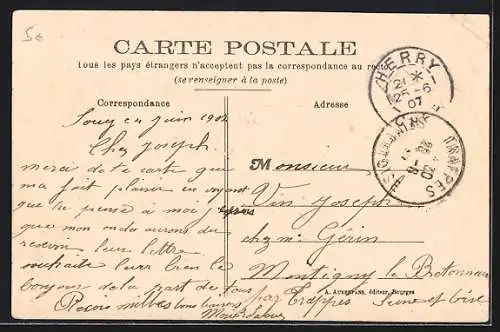 50
CARTE POSTALE
Tous les pays étrangers n'acceptent pas la correspondance au recto
(se renseigner à la poste)
Correspondance
Adresse
HERRY
21 *
25 - 6
07
TRAPPES
juin 1907
Cher Joseph.
merci de ta carte qui
ma fait plaisir en voyant
que tu pense à moi
que mon oncle
leur lettre
souhaite leur bien le
bonjour de la part de tous
Reçois milles bons baisers
Monsieur
Vin Joseph
chez mr Gérin
Montigny le Bretonneux
par Trappes Seine et Oise
A. AUXENFANS, éditeur, Bourges